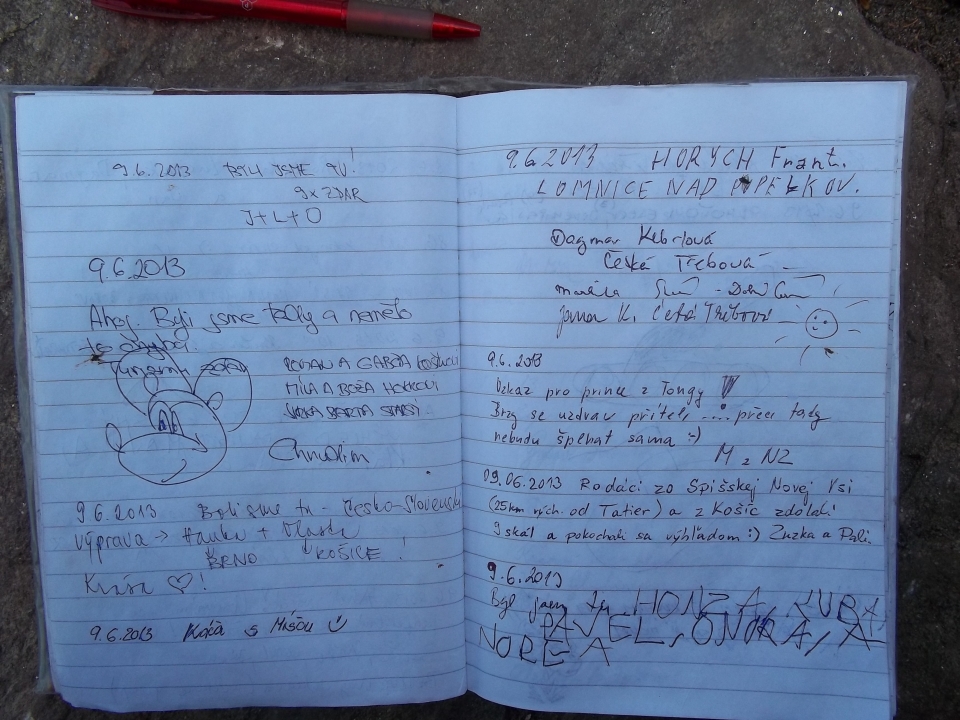 9.6.2013 BYLI JSME TU!
9x ZDAR
J+L+O
9.6.2013
Ahoj. Byli jsme tady a nemělo
to chybu.
ROMAN A GÁBINA
MÍLA A BOŽA
BÁRTA STARŠÍ
Chrudim
9.6.2013 Byli jsme tu - česko-slovenská
výprava → Hanka + Vlasta
BRNO KOŠICE!
Krása ♡!
9.6.2013 Káča s Míšou
9.6.2013 HORYCH Frant.
LOMNICE NAD POPELKOV.
Dagmar
Česká Třebová
Jana K. Česká Třebová
9.6.2013
Vzkaz pro prince z Tongy
Brzy se uzdrav příteli, .... přece tady
nebudu šplhat sama :-)
M z NZ
09.06.2013 Rodáci zo Spišskej Novej Vsi
(25km vých. od Tatier) a z Košic zdolali
9 skál a pokochali sa výhľadom :) Zuzka a Pali.
9.6.2013
Byl jsem tu HONZA, KUBA,
PAVEL, ONDRA, A
NOREA